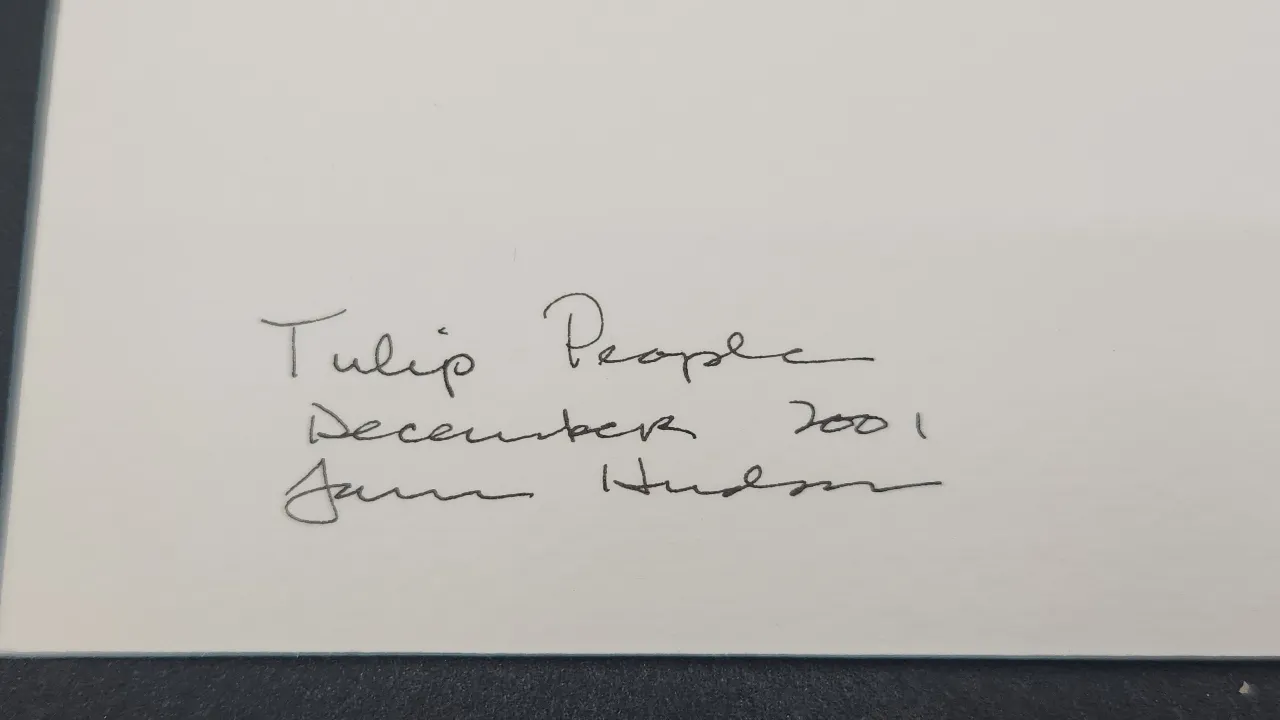 Tulip People
December 2001
Hudson